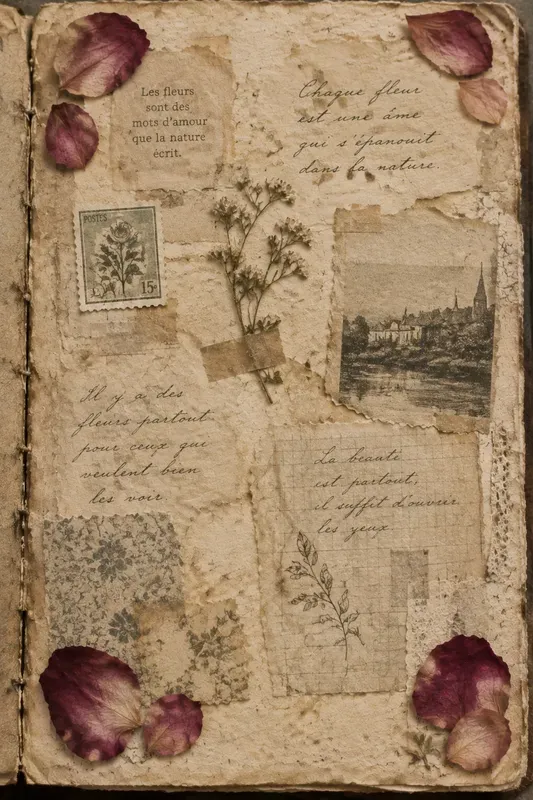 Les fleurs
sont des
mots d'amour
que la nature
écrit.
Chaque fleur
est une âme
qui s'épanouit
dans la nature.
POSTES
15
Il y a des
fleurs partout
pour ceux qui
veulent bien
les voir
La beauté
est partout,
il suffit d'ouvrir
les yeux